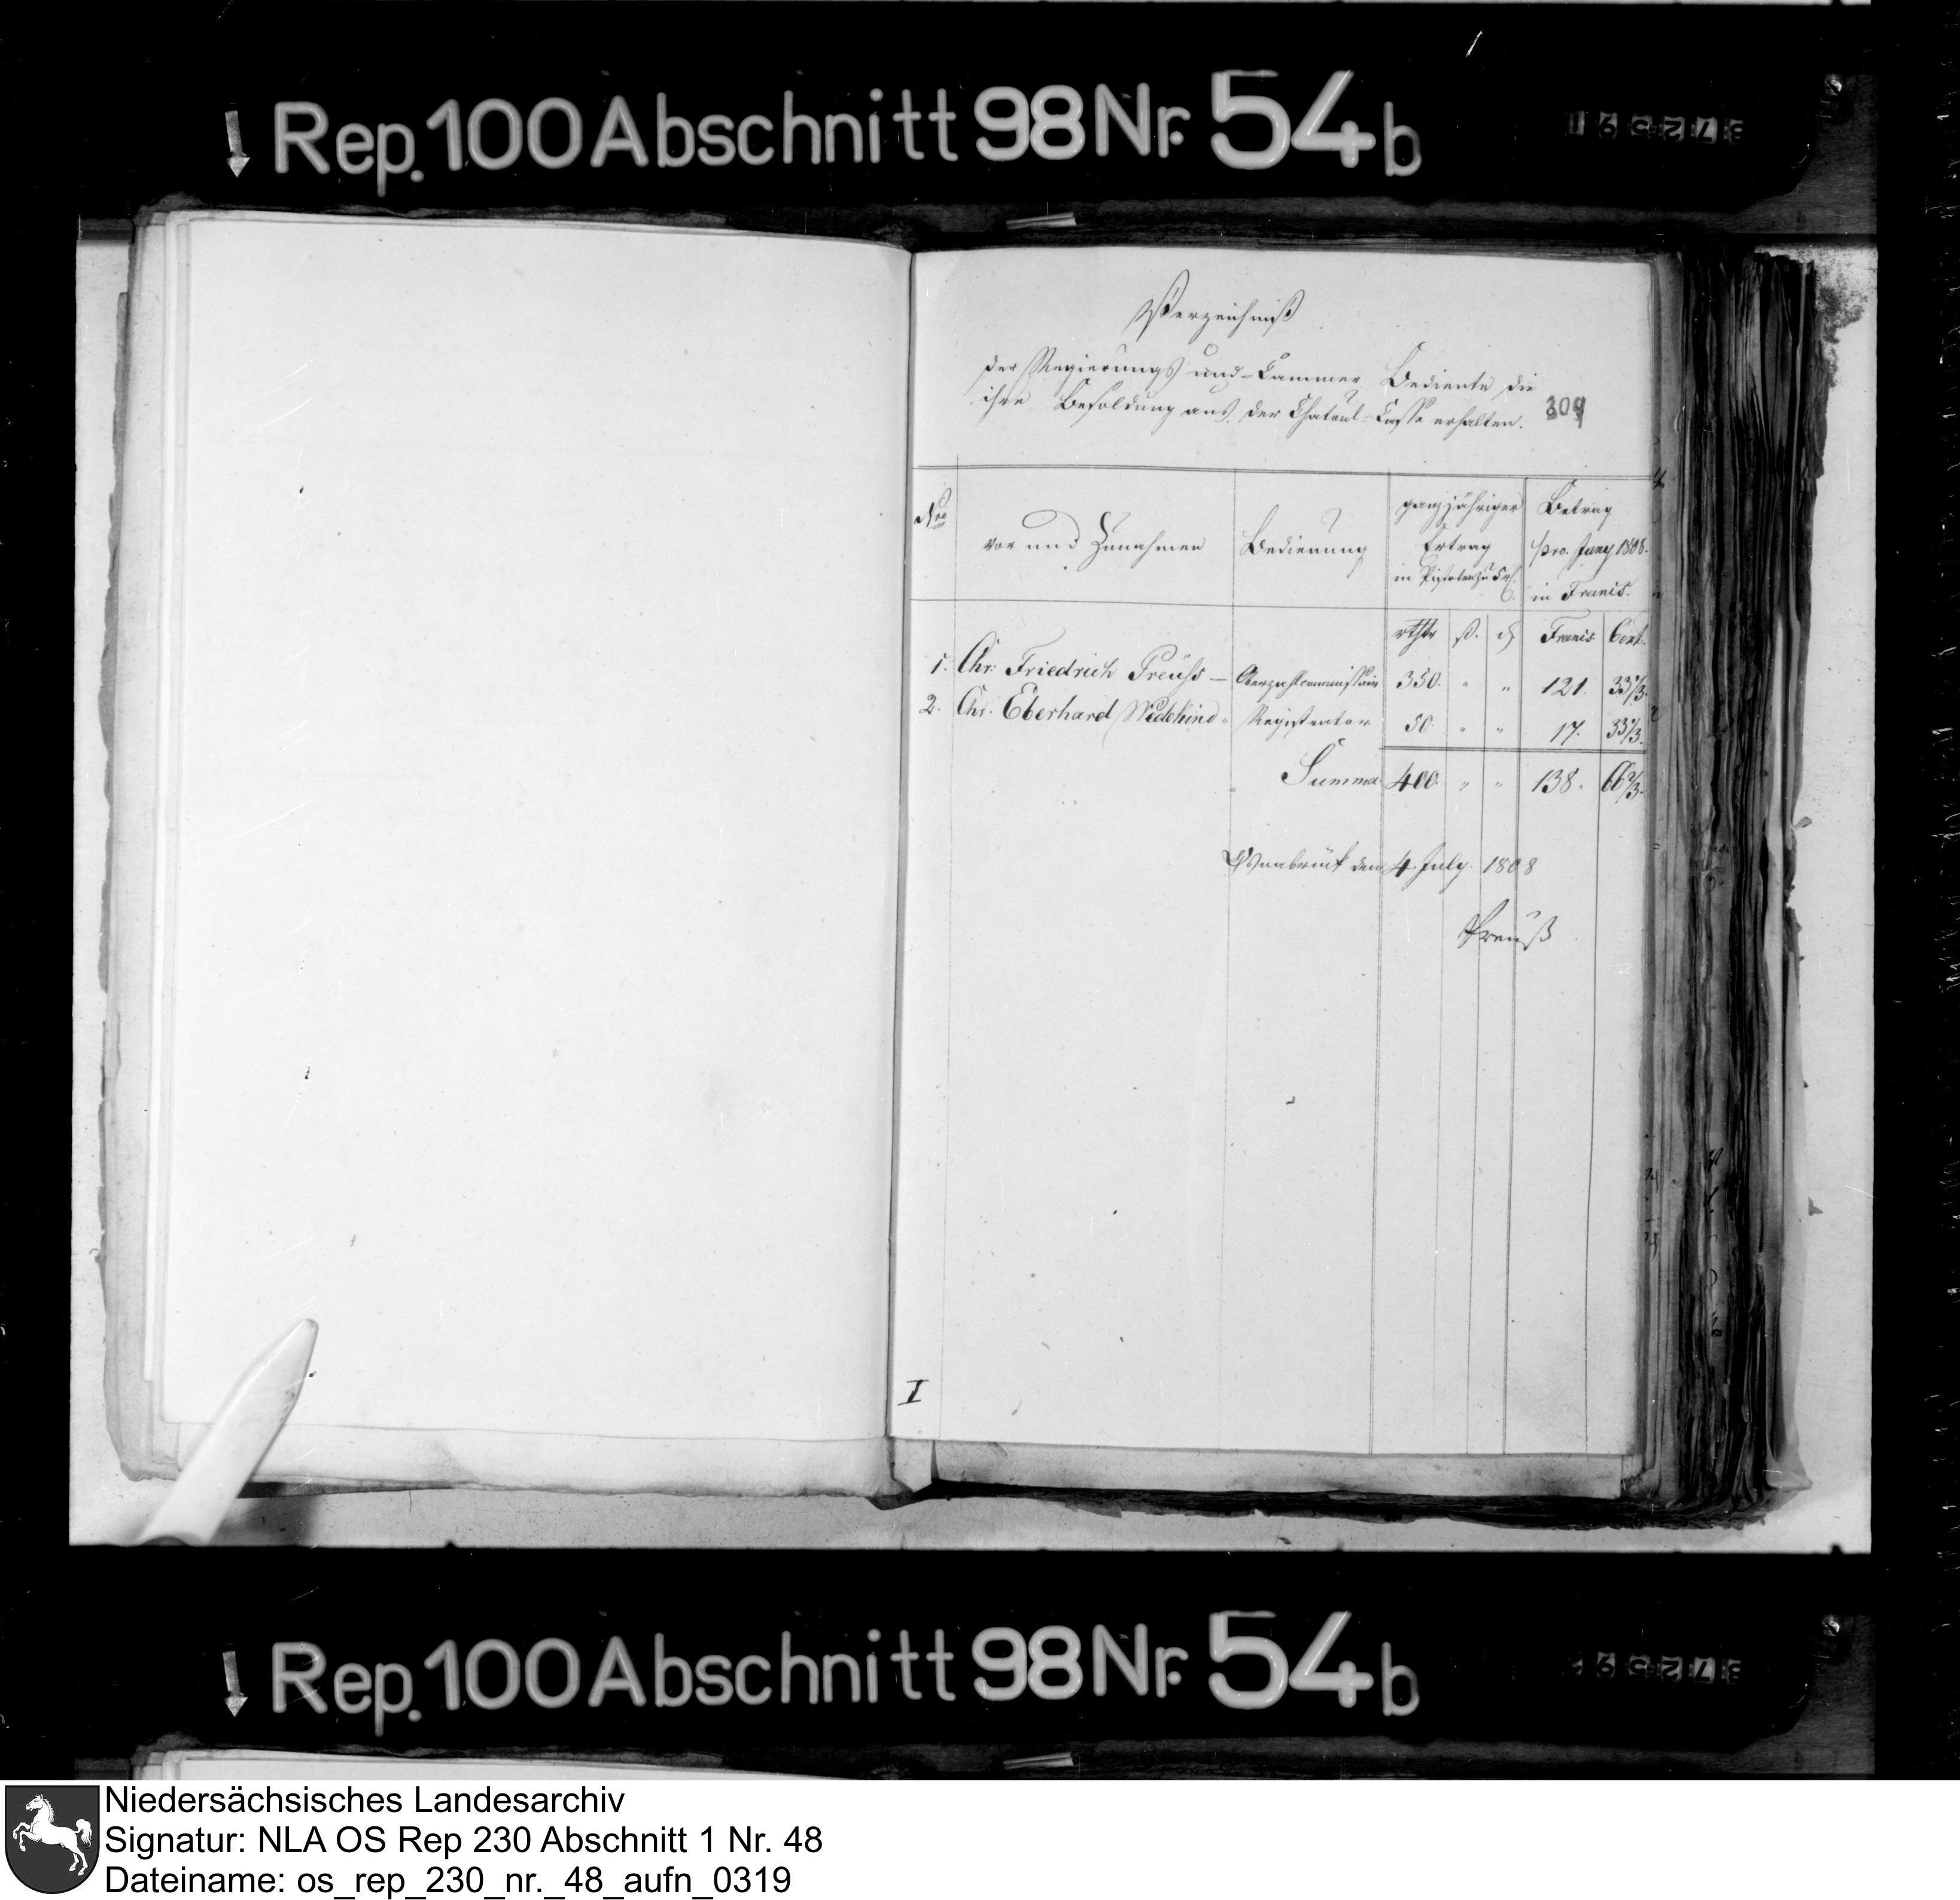 Rep. 100 Abschnitt 98 Nr. 54 b
Verzeichniß
der Regierungs und Cammer Bediente die
ihre Besoldung aus der Chatoul-Casse erhalten.
309
Nro
Vor und Zunahmen
Bedienung
ganzjähriger
Ertrag
in Pistolen zu 5 rth.
Betrag
pro. Juny 1808.
in Francs.
rthlr ß. d Francs Cent.
1. Chr. Friedrich Preuß — 350. " " 121. 33 1/3.
2. Chr. Eberhard Wedekind. Registrator 50. " " 17. 33 1/3.
Summa. 400. " " 138. 66 2/3.
Osnabrück den 4 July. 1808
Preuß
I
Rep. 100 Abschnitt 98 Nr. 54 b
Niedersächsisches Landesarchiv
Signatur: NLA OS Rep 230 Abschnitt 1 Nr. 48
Dateiname: os_rep_230_nr._48_aufn_0319